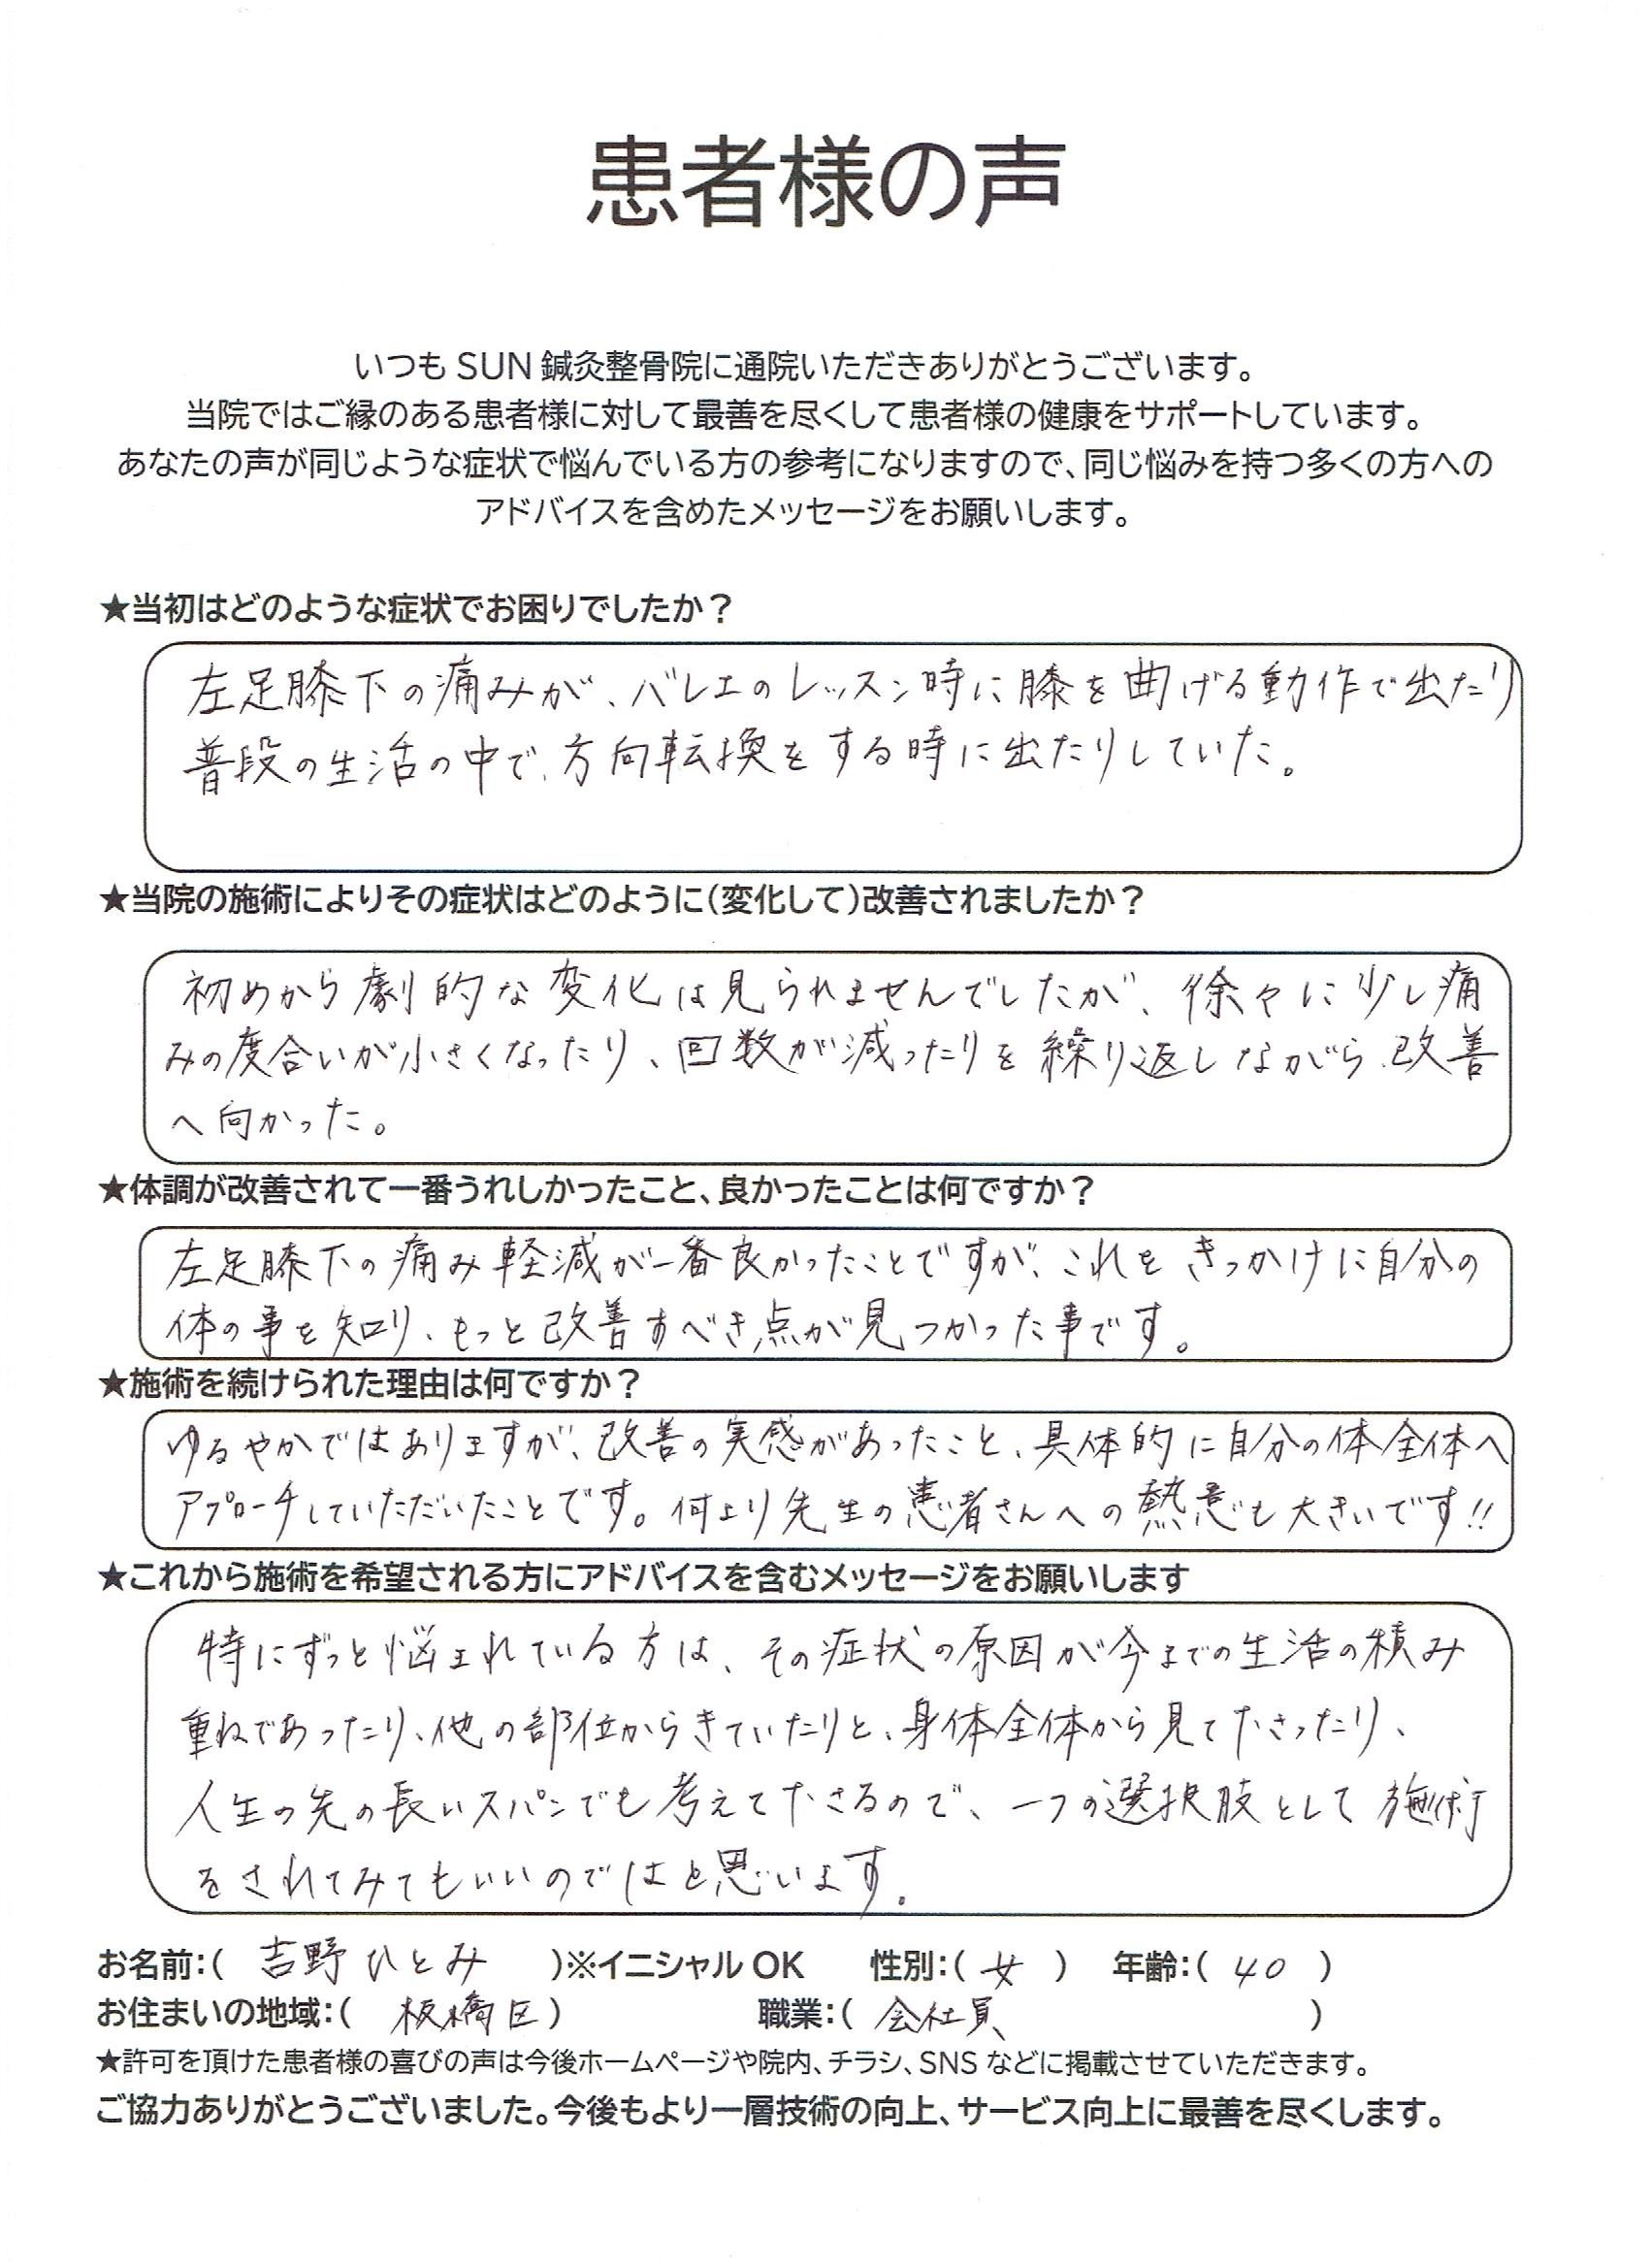 患者様の声
いつも SUN 鍼灸整骨院に通院いただきありがとうございます。
当院ではご縁のある患者様に対して最善を尽くして患者様の健康をサポートしています。
あなたの声が同じような症状で悩んでいる方の参考になりますので、同じ悩みを持つ多くの方への
アドバイスを含めたメッセージをお願いします。
★当初はどのような症状でお困りでしたか？
左足膝下の痛みが、バレエのレッスン時に膝を曲げる動作で出たり
普段の生活の中で、方向転換をする時に出たりしていた。
★当院の施術によりその症状はどのように（変化して）改善されましたか？
初めから劇的な変化は見られませんでしたが、徐々に少し痛
みの度合いが小さくなったり、回数が減ったりを繰り返しながら、改善
へ向かった。
★体調が改善されて一番うれしかったこと、良かったことは何ですか？
左足膝下の痛み軽減が一番良かったことですが、これをきっかけに自分の
体の事を知り、もっと改善すべき点が見つかった事です。
★施術を続けられた理由は何ですか？
ゆるやかではありますが、改善の実感があったこと、具体的に自分の体全体へ
アプローチしていただいたことです。何より先生の患者さんへの熱意も大きいです!!
★これから施術を希望される方にアドバイスを含むメッセージをお願いします
特にずっと悩まれている方は、その症状の原因が今までの生活の積み
重ねであったり、他の部位からきていたりと、身体全体から見て下さったり、
人生の先の長いスパンでも考えて下さるので、一つの選択肢として施術
をされてみてもいいのではと思います。
お名前：（ 吉野ひとみ ）※イニシャル OK 性別：（ 女 ） 年齢：（ 40 ）
お住まいの地域：（ 板橋区 ） 職業：（ 会社員 ）
★許可を頂けた患者様の喜びの声は今後ホームページや院内、チラシ、SNS などに掲載させていただきます。
ご協力ありがとうございました。今後もより一層技術の向上、サービス向上に最善を尽くします。